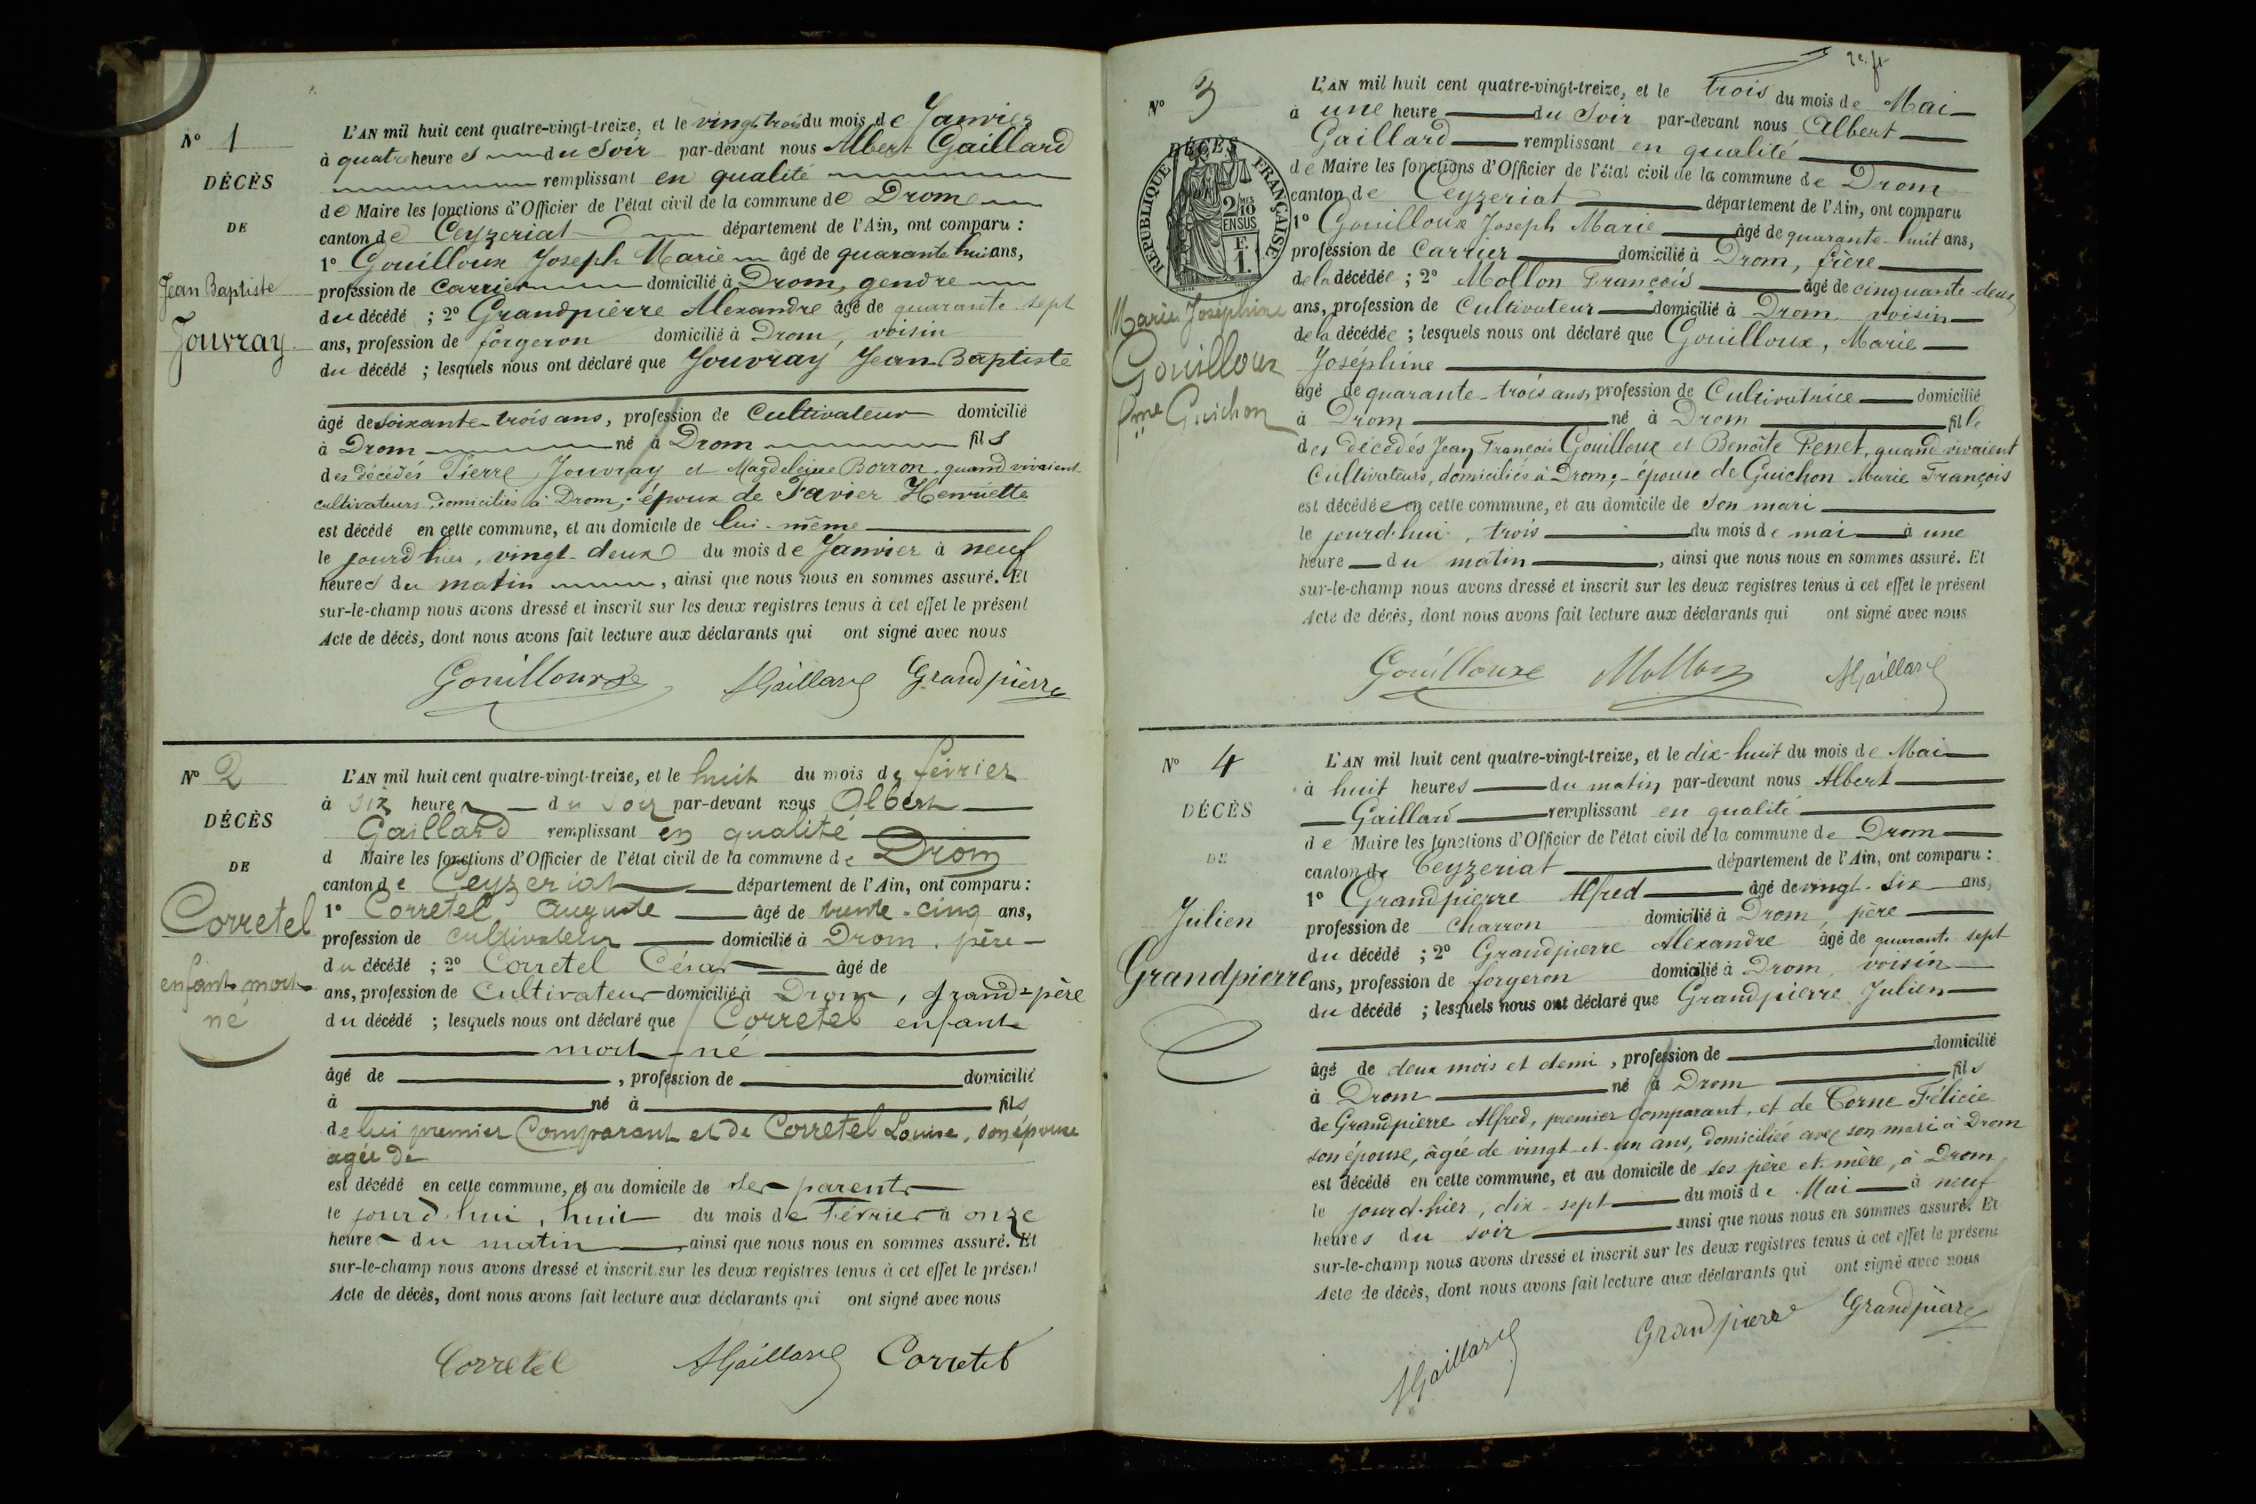 N° 1
DÉCÈS
DE
Jean Baptiste
Jouvray
L'AN mil huit cent quatre-vingt-treize, et le vingt trois du mois de Janvier
à quatre heures du Soir par-devant nous Albert Gaillard
remplissant en qualité
de Maire les fonctions d'Officier de l'état civil de la commune de Drom
canton de Ceyzeriat département de l'Ain, ont comparu :
1° Gouilloux Joseph Marie âgé de quarante huit ans,
profession de carrier domicilié à Drom, gendre
du décédé ; 2° Grandpierre Alexandre âgé de quarante-sept
ans, profession de forgeron domicilié à Drom, voisin
du décédé ; lesquels nous ont déclaré que Jouvray Jean-Baptiste
âgé de soixante-trois ans, profession de Cultivateur domicilié
à Drom né à Drom fils
des décédés Pierre Jouvray et Magdeleine Borron, quand vivaient
cultivateurs domiciliés à Drom ; époux de Favier Henriette
est décédé en cette commune, et au domicile de lui-même
le jourd'hier, vingt-deux du mois de Janvier à neuf
heures du matin, ainsi que nous nous en sommes assuré. Et
sur-le-champ nous avons dressé et inscrit sur les deux registres tenus à cet effet le présent
Acte de décès, dont nous avons fait lecture aux déclarants qui ont signé avec nous
Gouilloux AGaillard Grandpierre
N° 2
DÉCÈS
DE
Corretel
enfant mort
né
L'AN mil huit cent quatre-vingt-treize, et le huit du mois de février
à six heures du soir par-devant nous Albert
Gaillard remplissant en qualité
d Maire les fonctions d'Officier de l'état civil de la commune de Drom
canton de Ceyzeriat département de l'Ain, ont comparu :
1° Corretel Auguste âgé de trente-cinq ans,
profession de cultivateur domicilié à Drom, père
du décédé ; 2° Corretel César âgé de
ans, profession de Cultivateur domicilié à Drom, grand-père
du décédé ; lesquels nous ont déclaré que Corretel enfant
mort-né
âgé de , profession de domicilié
à né à fils
de lui premier Comparant et de Corretel Louise, son épouse
agée de
est décédé en cette commune, et au domicile de ses parents
le jourd'hui, huit du mois de Février à onze
heures du matin, ainsi que nous nous en sommes assuré. Et
sur-le-champ nous avons dressé et inscrit sur les deux registres tenus à cet effet le présent
Acte de décès, dont nous avons fait lecture aux déclarants qui ont signé avec nous
Corretel AGaillard Corretel
N° 3
DÉCÈS
RÉPUBLIQUE FRANÇAISE
2/10 EN SUS
F. 1
Marie Joséphine
Gouilloux
fme Guichon
L'AN mil huit cent quatre-vingt-treize, et le trois du mois de Mai
à une heure du Soir par-devant nous Albert
Gaillard remplissant en qualité
de Maire les fonctions d'Officier de l'état civil de la commune de Drom
canton de Ceyzeriat département de l'Ain, ont comparu
1° Gouilloux Joseph Marie âgé de quarante-huit ans,
profession de Carrier domicilié à Drom, frère
de la décédée ; 2° Mollon François âgé de cinquante-deux
ans, profession de Cultivateur domicilié à Drom voisin
de la décédée ; lesquels nous ont déclaré que Gouilloux, Marie
Joséphine
âgé de quarante-trois ans, profession de Cultivatrice domicilié
à Drom né à Drom fille
des décédés Jean François Gouilloux et Benoîte Penet, quand vivaient
Cultivateurs, domiciliés à Drom ;- épouse de Guichon Marie François
est décédée en cette commune, et au domicile de son mari
le jourd'hui, trois du mois de mai à une
heure du matin, ainsi que nous nous en sommes assuré. Et
sur-le-champ nous avons dressé et inscrit sur les deux registres tenus à cet effet le présent
Acte de décès, dont nous avons fait lecture aux déclarants qui ont signé avec nous
Gouilloux Mollon AGaillard
N° 4
DÉCÈS
DE
Julien
Grandpierre
L'AN mil huit cent quatre-vingt-treize, et le dix-huit du mois de Mai
à huit heures du matin par-devant nous Albert
Gaillard remplissant en qualité
de Maire les fonctions d'Officier de l'état civil de la commune de Drom
canton de Ceyzeriat département de l'Ain, ont comparu :
1° Grandpierre Alfred âgé de vingt-six ans,
profession de charron domicilié à Drom, père
du décédé ; 2° Grandpierre Alexandre âgé de quarante-sept
ans, profession de forgeron domicilié à Drom, voisin
du décédé ; lesquels nous ont déclaré que Grandpierre Julien
âgé de deux mois et demi, profession de domicilié
à Drom né à Drom fils
de Grandpierre Alfred, premier Comparant, et de Corne Félicie
son épouse, âgée de vingt-et-un ans, domiciliée avec son mari à Drom
est décédé en cette commune, et au domicile de ses père et mère, à Drom
le jourd'hier, dix-sept du mois de Mai à neuf
heures du soir ainsi que nous nous en sommes assuré. Et
sur-le-champ nous avons dressé et inscrit sur les deux registres tenus à cet effet le présent
Acte de décès, dont nous avons fait lecture aux déclarants qui ont signé avec nous
AGaillard Grandpierre Grandpierre